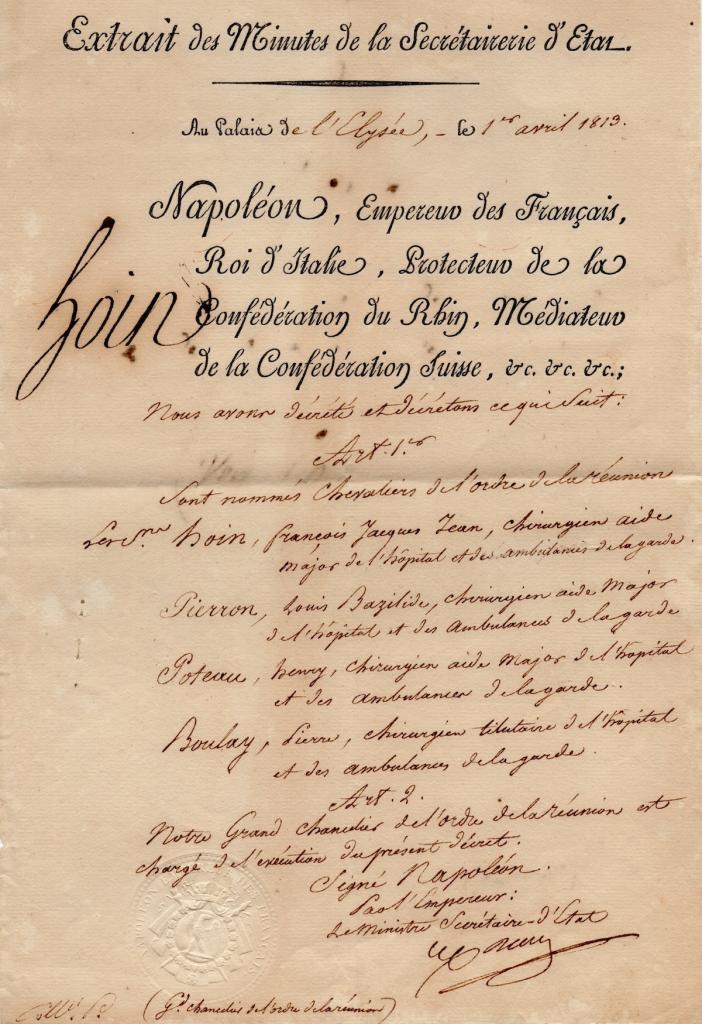 Extrait des Minutes de la Secrétairerie d'Etat.
Au Palais de l'Elysée, - le 1er avril 1813.
Napoléon, Empereur des Français,
Roi d'Italie, Protecteur de la
hoin
Confédération du Rhin, Médiateur
de la Confédération Suisse, &c. &c. &c.;
Nous avons décrété et décretons ce qui suit:
Art. 1er
Sont nommés Chevaliers de l'ordre de la réunion
Les Srs hoin, françois Jacques Jean, chirurgien aide
major de l'hôpital et des ambulances de la garde.
Pierron, Louis Bazilide, chirurgien aide Major
de l'hôpital et des ambulances de la garde
Poteau, henry, chirurgien aide Major de l'hôpital
et des ambulances de la garde.
Boulay, Pierre, chirurgien titutaire de l'hôpital
et des ambulances de la garde.
Art. 2.
Notre Grand chancelier de l'ordre de la réunion est
chargé de l'exécution du présent décret.
Signé Napoléon.
Par l'Empereur:
Le Ministre Secrétaire-d'Etat
(Gd chancelier de l'ordre de la réunion)